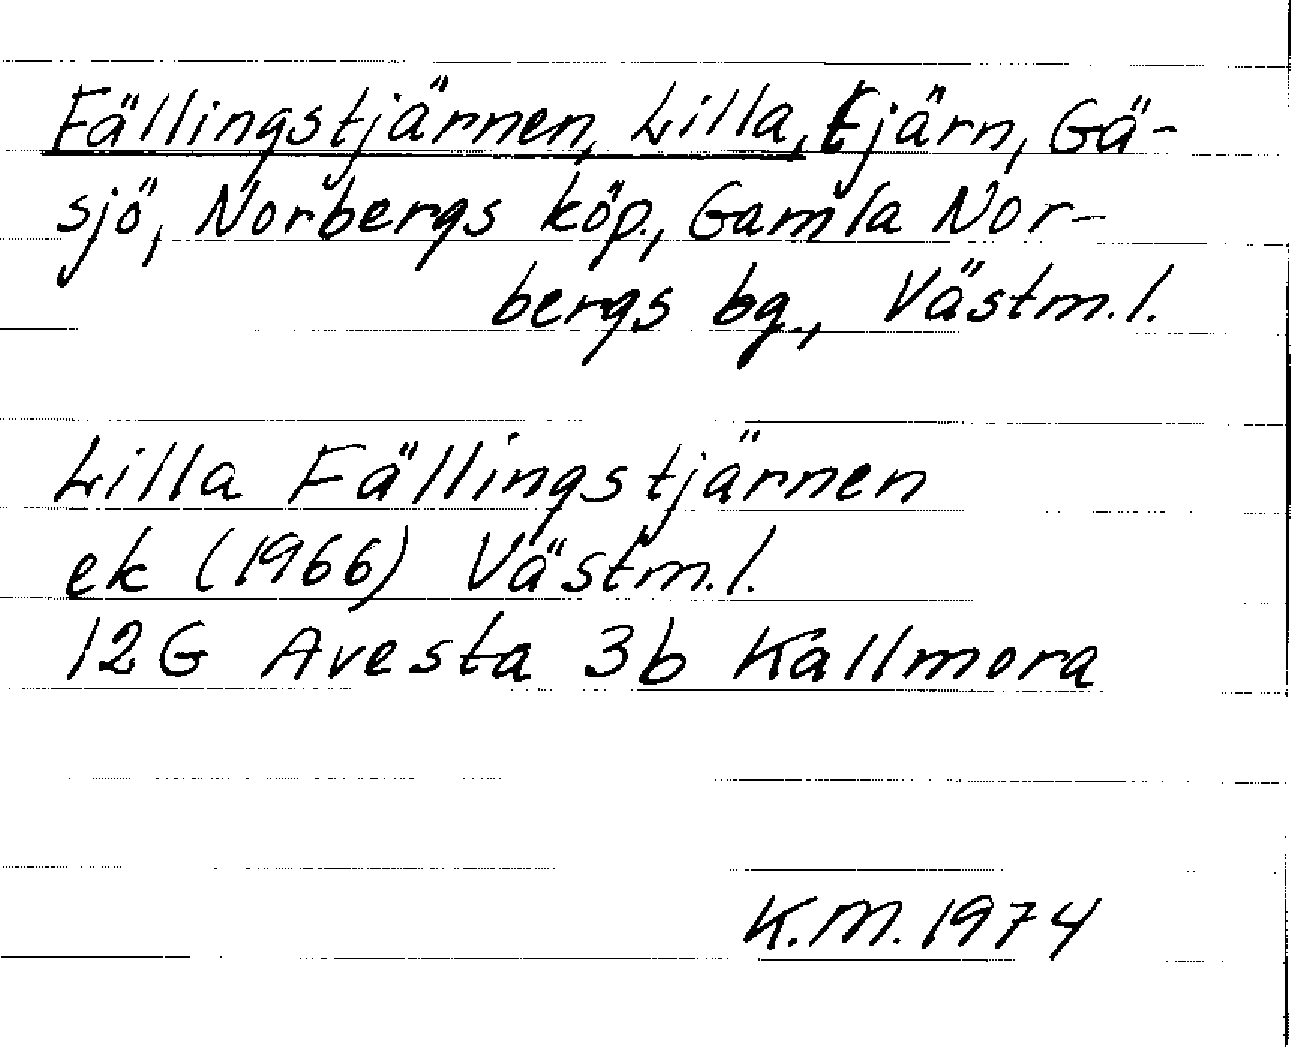 Fällingstjärnen, Lilla, tjärn, Gä-
sjö, Norbergs köp., Gamla Nor-
bergs bg., Västm.l.
Lilla Fällingstjärnen
ek (1966) Västm.l.
12G Avesta 3b Kallmora
K.M. 1974